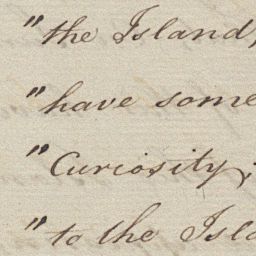 "the Island,
"have some
"Curiosity;
"to the Isla